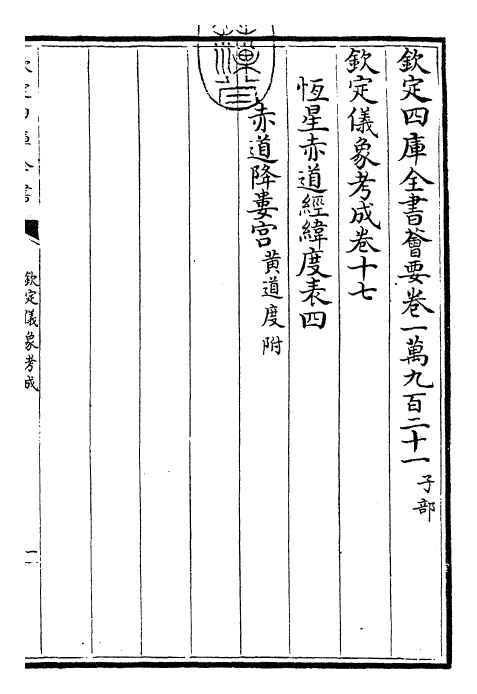 欽定四庫全書薈要卷一萬九百二十一 子部
欽定儀象考成卷十七
恆星赤道經緯度表四
赤道降婁宮 黃道度附
欽定四庫全書
欽定儀象考成
一